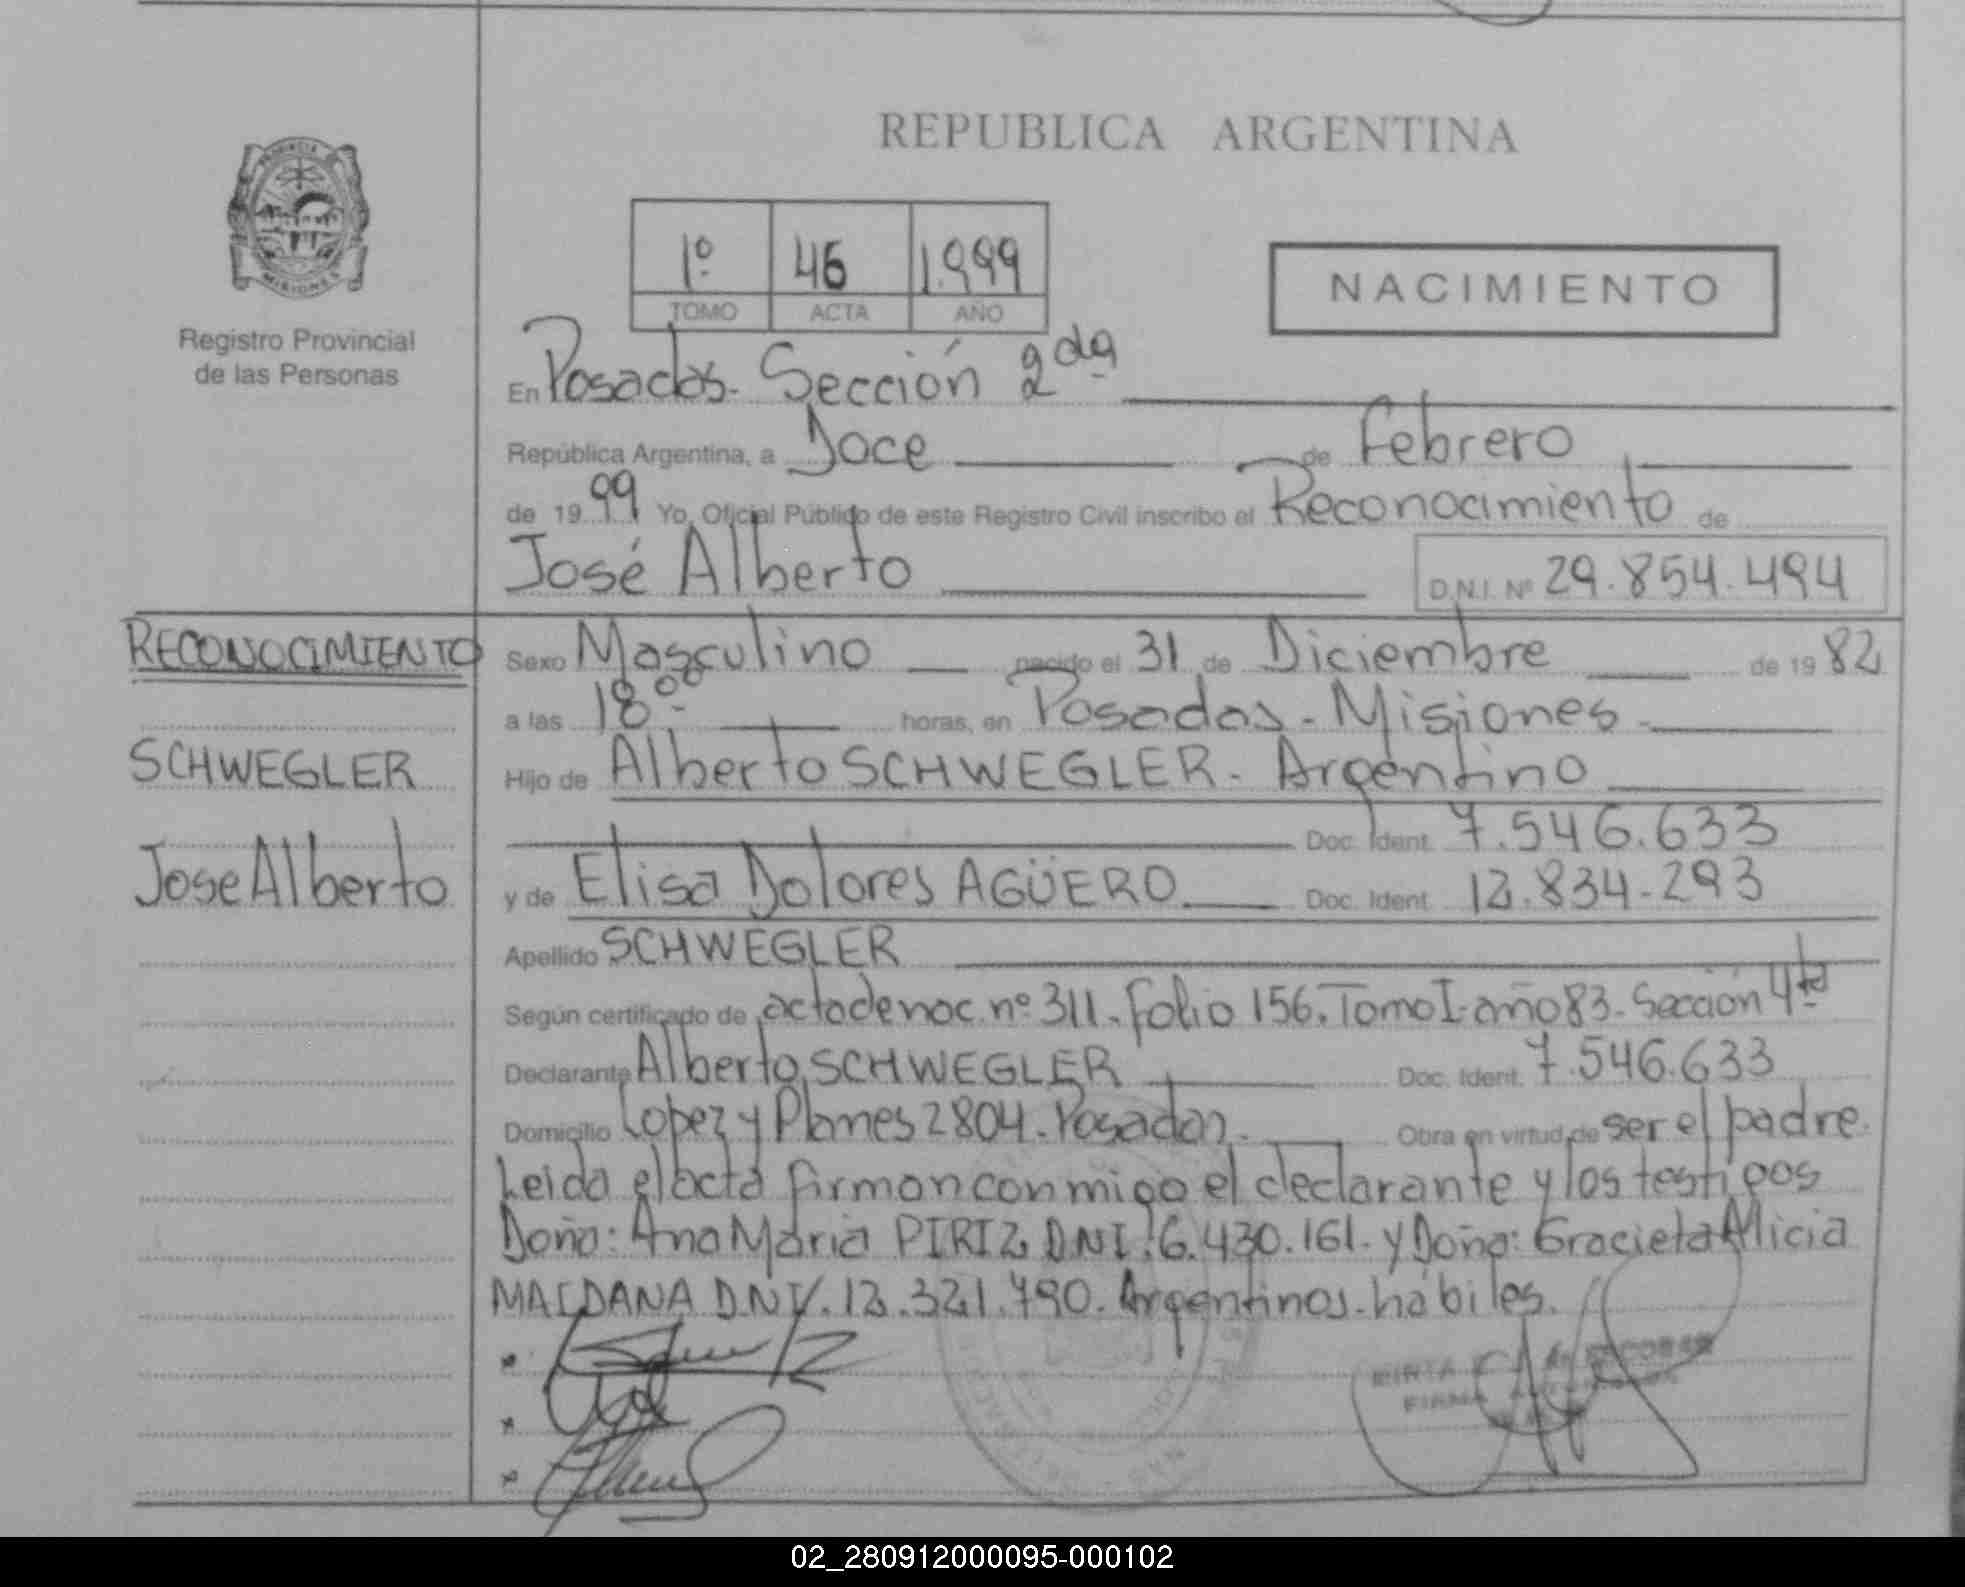 REPUBLICA ARGENTINA
PROVINCIA
MISIONES
Registro Provincial
de las Personas
1º 46 1.999
TOMO ACTA AÑO
NACIMIENTO
En Posadas. Sección 2da
República Argentina, a Doce de Febrero
de 19 99 Yo, Oficial Público de este Registro Civil inscribo el Reconocimiento de
José Alberto D.N.I. Nº 29.854.494
RECONOCIMIENTO
SCHWEGLER
Jose Alberto
Sexo Masculino nacido el 31 de Diciembre de 19 82
a las 18ºº horas, en Posadas - Misiones
Hijo de Alberto SCHWEGLER - Argentino
Doc. Ident. 7.546.633
y de Elisa Dolores AGÜERO Doc. Ident. 12.834.293
Apellido SCHWEGLER
Según certificado de acta de nac. nº 311. Folio 156. Tomo I. año 83. Sección 4ta
Declarante Alberto SCHWEGLER Doc. Ident. 7.546.633
Domicilio Lopez y Planes 2804. Posadas. Obra en virtud de ser el padre.
Leida el acta firman conmigo el declarante y los testigos
Doña: Ana Maria PIRIZ D.N.I. 6.430.161. y Doña: Graciela Alicia
MAIDANA D.N.I. 12.321.790. Argentinos. hábiles.
02_280912000095-000102